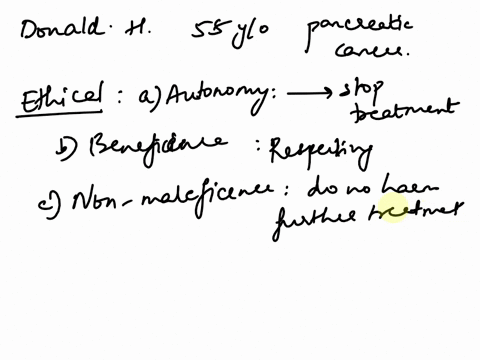 Donald. H. 55 y/o pancreatic cancer.
Ethical : a) Autonomy: → stop treatment
b) Beneficience : Respecting
c) Non-maleficence : do no harm
further treatment